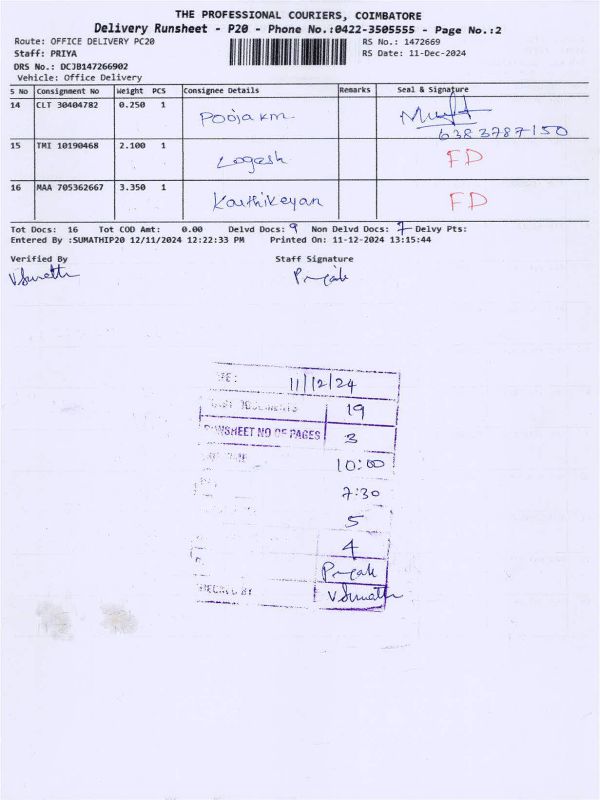 THE PROFESSIONAL COURIERS, COIMBATORE
Delivery Runsheet - P20 - Phone No.:0422-3505555 - Page No.:2
Route: OFFICE DELIVERY PC20
RS No.: 1472669
Staff: PRIYA
RS Date: 11-Dec-2024
DRS No.: DCJB147266902
Vehicle: Office Delivery
S No Consignment No Weight PCS Consignee Details Remarks Seal & Signature
14 CLT 30404782 0.250 1 Pooja km
6383787150
15 TMI 10190468 2.100 1 Logesh FD
16 MAA 705362667 3.350 1 Karthikeyan FD
Tot Docs: 16 Tot COD Amt: 0.00 Delvd Docs: 9 Non Delvd Docs: 7 Delvy Pts:
Entered By :SUMATHIP20 12/11/2024 12:22:33 PM Printed On: 11-12-2024 13:15:44
Verified By Staff Signature
11/12/24
19
RUNSHEET NO OF PAGES 3
10:00
7:30
5
4